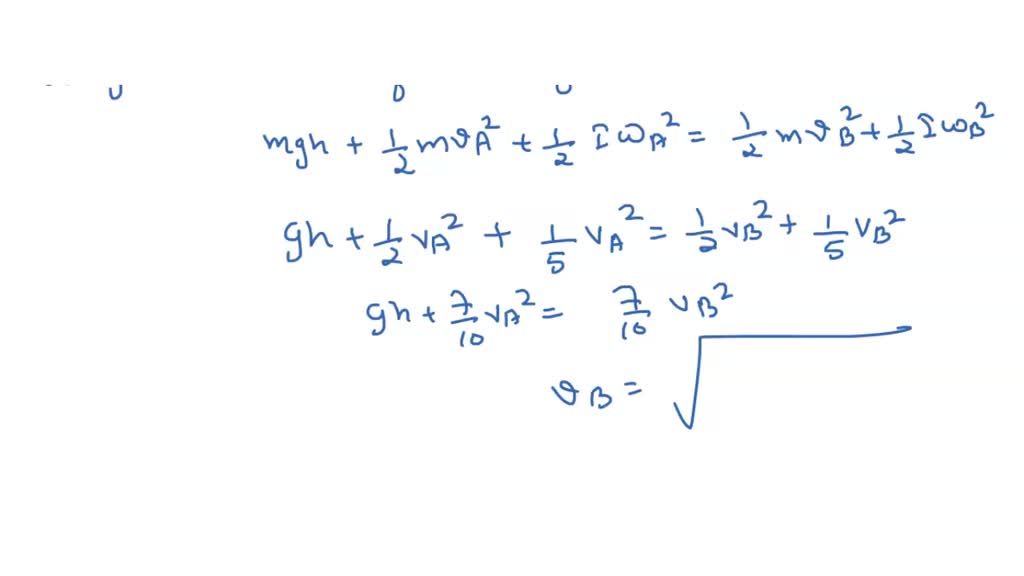 mgh + 1/2 mv_A^2 + 1/2 Iω_A^2 = 1/2 mv_B^2 + 1/2 Iω_B^2
gh + 1/2 v_A^2 + 1/5 v_A^2 = 1/2 v_B^2 + 1/5 v_B^2
gh + 7/10 v_A^2 = 7/10 v_B^2
v_B = √